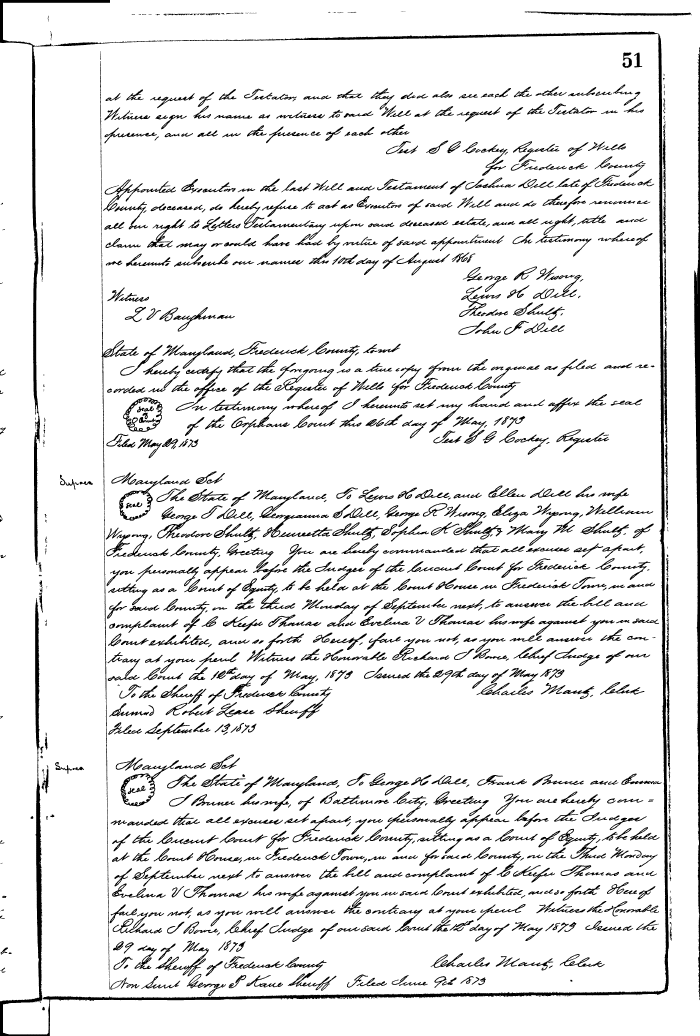 51
at the request of the Testator, and that they did also see each the other subscribing
Witness sign his name as witness to said Will at the request of the Testator in his
presence, and all in the presence of each other
Test S G Cockey, Register of Wills
for Frederick County
Appointed Executors in the last Will and Testament of Joshua Dill late of Frederick
County, deceased, do hereby refuse to act as Executors of said Will and do therefore renounce
all our right to Letters Testamentary upon said deceased estate, and all right, title and
claim that may or could have had by virtue of said appointment In testimony whereof
we hereunto subscribe our names this 10th day of August 1868
George R Wisong,
Lewis H Dill,
Witness
Theodore Shultz,
L V Baughman
John F Dill
State of Maryland, Frederick County, to wit
I hereby certify that the foregoing is a true copy from the original as filed and re-
corded in the office of the Register of Wills for Frederick County
In testimony whereof I hereunto set my hand and affix the seal
of the Orphans Court this 26th day of May, 1873
Filed May 29, 1873
Test S G Cockey, Register
Supoena
Maryland Sct
Seal
The State of Maryland, To Lewis H Dill, and Ellen Dill his wife
George T Dill, Georgianna S Dill, George R Wisong, Eliza Wisong, William
Wisong, Theodore Shultz, Henrietta Shultz, Sophia K Shultz, & Mary M Shultz, of
Frederick County, Greeting You are hereby commanded that all excuses set apart,
you personally appear before the Judges of the Circuit Court for Frederick County,
sitting as a Court of Equity, to be held at the Court House in Frederick Town, in and
for said County, on the third Monday of September next, to answer the bill and
complaint of C Keefer Thomas and Evelina V Thomas his wife against you in said
Court exhibited, and so forth Hereof, fail you not, as you will answer the con-
trary at your peril Witness the Honorable Richard J Bowie, Chief Judge of our
said Court the 12th day of May, 1873 Issued the 29th day of May 1873
To the Sheriff of Frederick County
Charles Mantz, Clerk
Sumod Robert Lease Sheriff
Filed September 13, 1873
Supoena
Maryland Sct
Seal
The State of Maryland, To George H Dill, Frank Bruner and Emma
J Bruner his wife, of Baltimore City, Greeting You are hereby com-
manded that all excuses set apart, you personally appear before the Judges
of the Circuit Court for Frederick County, sitting as a Court of Equity, to be held
at the Court House, in Frederick Town, in and for said County, on the Third Monday
of September next to answer the bill and complaint of C Keefer Thomas and
Evelina V Thomas his wife against you in said Court exhibited, and so forth Hereof
fail you not, as you will answer the contrary at your peril Witness the Honorable
Richard J Bowie, Chief Judge of our said Court the 12th day of May 1873 Issued the
29 day of May 1873
To the Sheriff of Frederick County
Charles Mantz, Clerk
Non Sumt George P Kane Sheriff Filed June 9th 1873